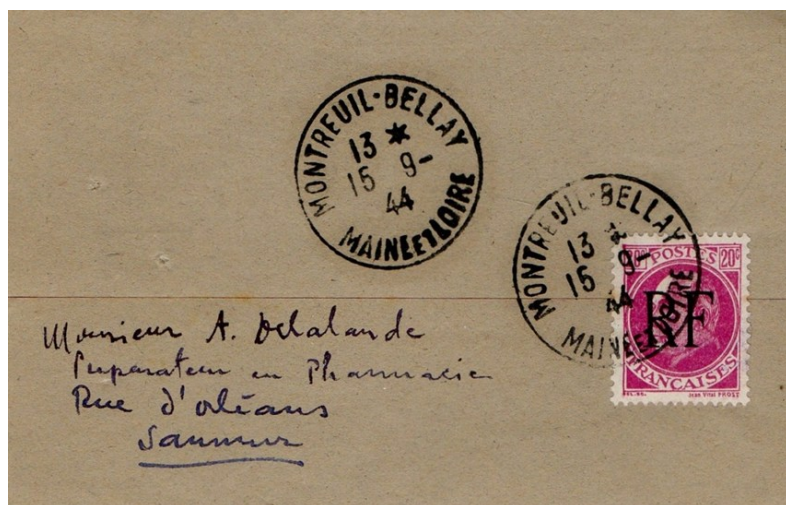 MONTREUIL-BELLAY
13 *
15 9-
44
MAINE ET LOIRE
MONTREUIL-BELLAY
13 *
15 9-
44
MAINE ET LOIRE
POSTES 20c
RF
FRANÇAISES
Jean Vital PROST
Monsieur A. Delalande
Préparateur en Pharmacie
Rue d'orléans
Saumur